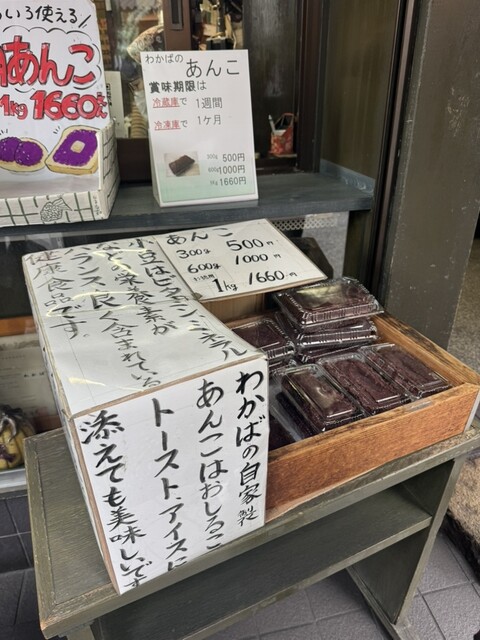 いろ使える
あんこ
1kg 1660円
わかばの あんこ
賞味期限は
冷蔵庫で 1週間
冷凍庫で 1ケ月
300g 500円
600g 1000円
1kg 1660円
あんこ
300g 500円
600g 1000円
お徳用 1kg 1660円
小豆はビタミン、ミネラル
などの栄養素が
バランス良く含まれている
健康食品です。
わかばの自家製
あんこはおしるこ
トースト、アイスに
添えても美味しいです